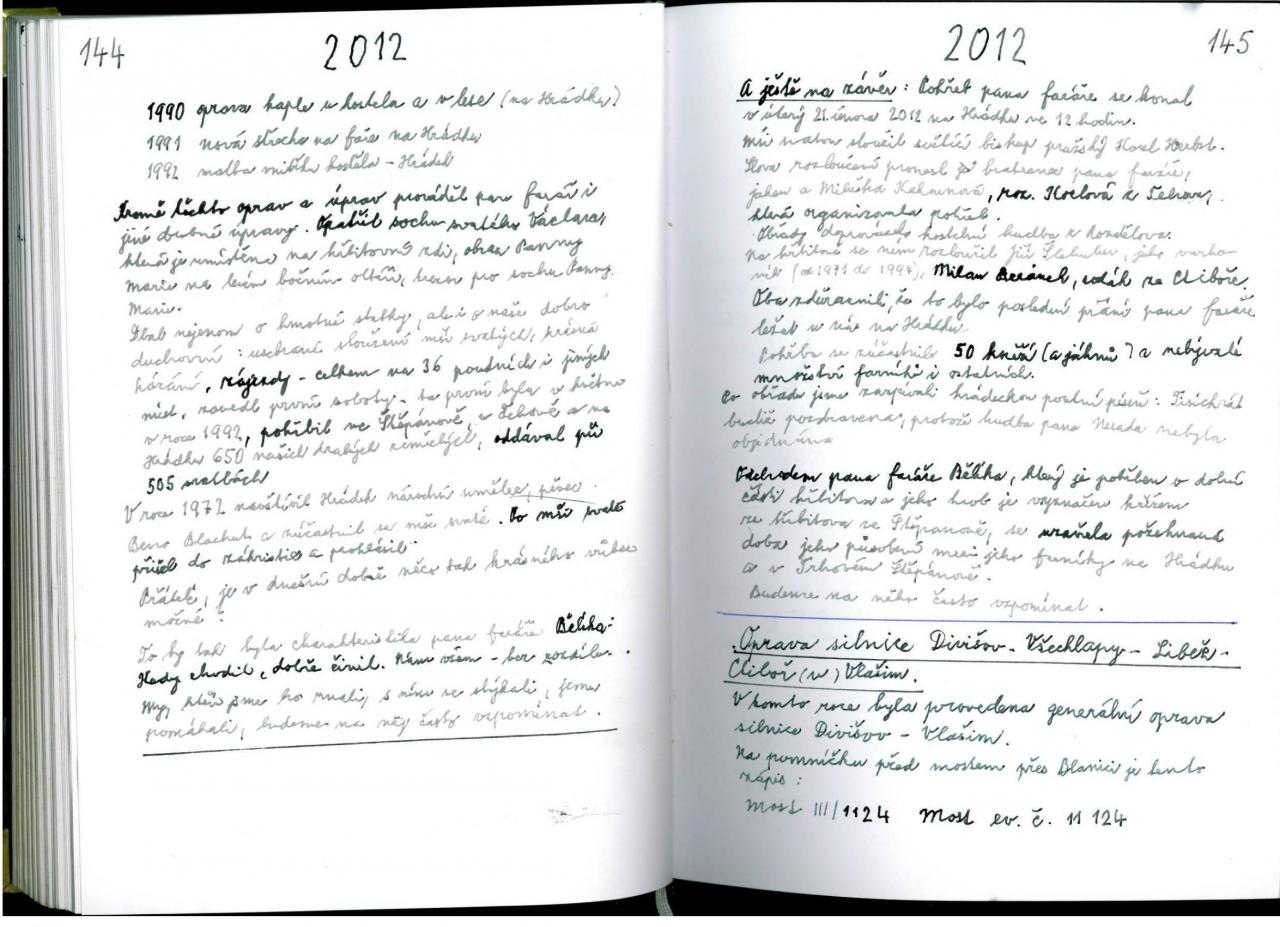 144
2012
1990 oprava kaple u kostela a v lese (na Hrádku)
1991 nová střecha na faře na Hrádku
1992 malba vnitřku kostela - Hrádek
Kromě těchto oprav a úprav prováděl pan farář i
jiné drobné úpravy. Opatřil sochu svatého Václava,
která je umístěna na hřbitovní zdi, obraz Panny
Marie na levém bočním oltáři, pro sochu Panny
Marie.
Dbal nejenom o hmotné statky, ale i o naše dobro
duchovní: sloužení mší svatých, krásná
kázání, zájezdy - celkem na 36 poutních i jiných
míst, zavedl první soboty - ta první byla v květnu
v roce 1992, pohřbil ve Štěpánově, v Čechově a na
Hrádku 650 našich drahých zemřelých, oddával při
505 svatbách
V roce 1972 navštívil Hrádek národní umělec, pěvec
Beno Blachut a zúčastnil se mše svaté. Po mši svaté
přišel do zákristie a prohlásil:
Přátelé, je v dnešní době něco tak krásného vůbec
možné?
To by tak byla charakteristika pana faráře Bělíka:
Kudy chodil, dobře činil. Nám všem - bez rozdílu.
My, kteří jsme ho znali, s ním se stýkali, jemu
pomáhali, budeme na něj často vzpomínat.
2012
145
A ještě na závěr: Pohřeb pana faráře se konal
v úterý 21. února 2012 na Hrádku ve 12 hodin.
Mši svatou sloužil světící biskup pražský Karel Herbst.
Slova rozloučení pronesl bratranec pana faráře,
jáhen a Miluška Kalounová, roz. z
která organizovala pohřeb.
Obřady doprovázela kostelní hudba z Rozdělova.
Na hřbitově se ním rozloučil Jiří jako varha-
ník (od 1971 do 1994), Milan Beránek, rodák ze Ctiboře.
Oba zdůraznili, že to bylo poslední přání pana faráře
ležet u nás na Hrádku.
Pohřbu se zúčastnilo 50 kněží (a jáhnů) a nebývalé
množství farníků i ostatních.
Po obřadu jsme zazpívali hrádeckou poutní píseň: Tisíckrát
budiž pozdravena, protože hudba pana nebyla
objednána
Odchodem pana faráře Bělíka, který je pohřben v dolní
části hřbitova a jeho hrob je vyznačen křížem
ze hřbitova ve Štěpánově, se uzavřela požehnaná
doba jeho působení mezi jeho farníky na Hrádku
a v Trhovém Štěpánově.
Budeme na něho často vzpomínat.
Oprava silnice Divišov - Všechlapy - Libež -
Ctiboř (u) Vlašim.
V tomto roce byla provedena generální oprava
silnice Divišov - Vlašim.
Na pomníčku před mostem přes Blanici je tento
zápis:
Most III/1124 Most ev. č. 11 124